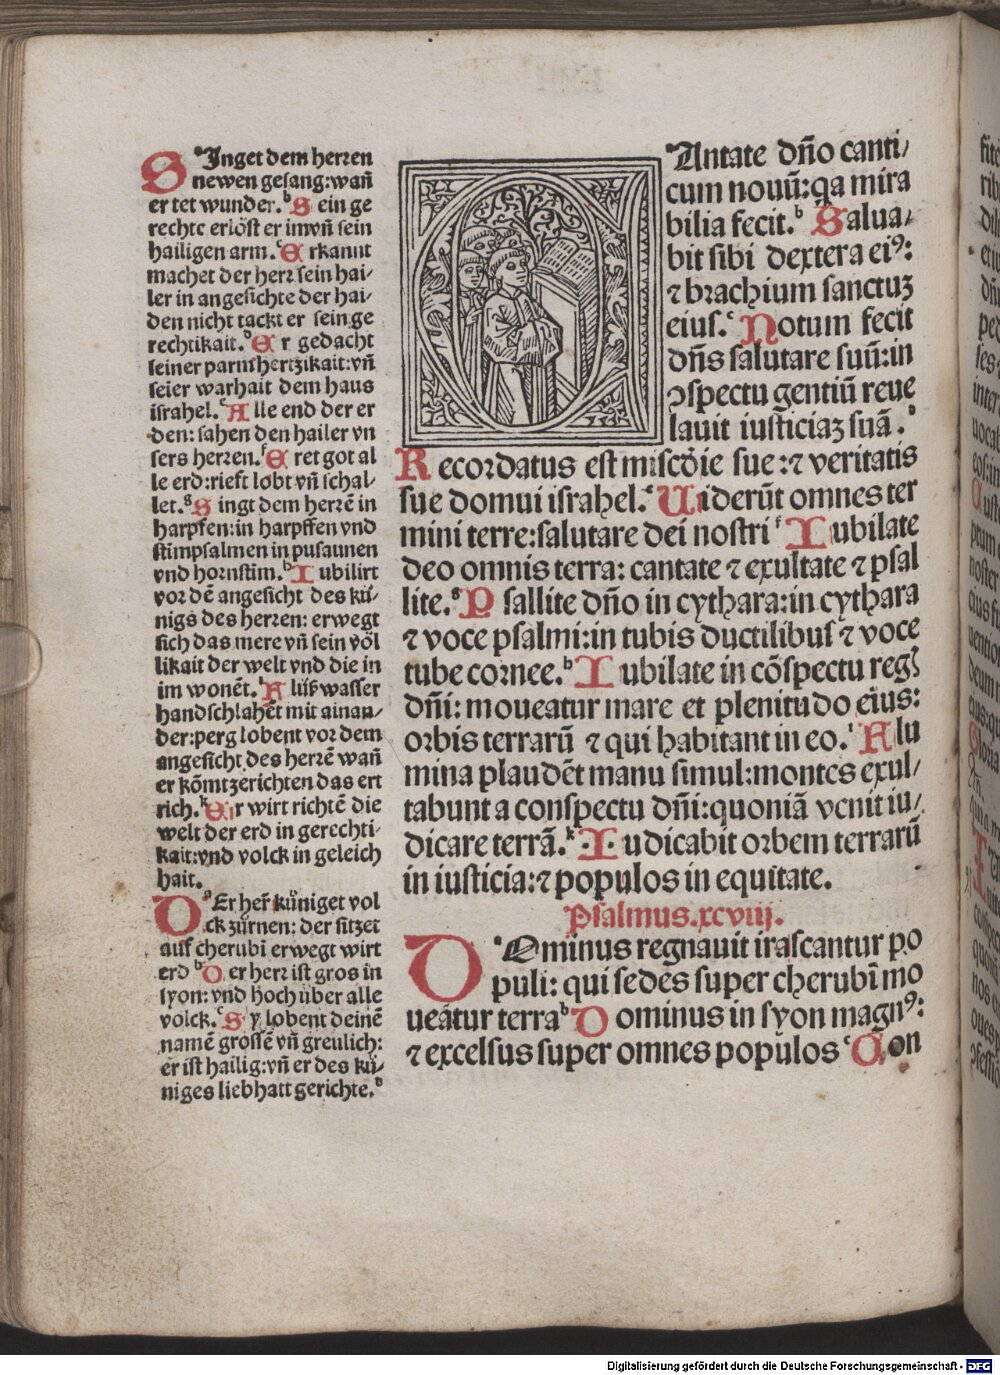 SInget dem herren
newen gesang:wan̄
er tet wunder.ᵇ S ein ge
rechte erlöst er im vn̄ sein
hailigen arm.ᶜ E rkannt
machet der herr sein hai⸗
ler in angesichte der hai⸗
den nicht tackt er sein ge
rechtikait.ᵈ E r gedacht
seiner parmhertzikait:vn̄
seier warhait dem haus
israhel.ᵉ A lle end der er
den: sahen den hailer vn
sers herren.ᶠ E ret got al
le erd:rieft lobt vn̄ schal⸗
let.ᵍ S ingt dem herrē in
harpfen:in harpffen vnd
stimpsalmen in pusaunen
vnd hornstim.ʰ I ubilirt
vor dē angesicht des kü⸗
nigs des herren: erwegt
sich das mere vn̄ sein völ
likait der welt vnd die in
im wonēt.ⁱ A lüß wasser
handschlahēt mit ainan⸗
der:perg lobent vor dem
angesicht des herrē wan̄
er kōmt zerichten das ert
rich.ᵏ E r wirt richtē die
welt der erd in gerechti⸗
kait:vnd volck in geleich
hait.
DᵃEr her̄ küniget vol
ck zürnen: der sitzet
auf cherubi erwegt wirt
erd ᵇD er herr ist gros in
syon: vnd hoch über alle
volck.ᶜ S y lobent deinē
namē grossē vn̄ greulich:
er ist hailig:vn̄ er des kü⸗
niges liebhatt gerichte.ᵈ
ᵃAntate dn̄o canti⸗
cum nouū:qa mira
bilia fecit.ᵇ Salua⸗
bit sibi dextera eiꝰ:
⁊ brachium sanctuꝫ
eius.ᶜ Notum fecit
dn̄s salutare suū:in
ↄspectu gentiū reue
lauit iusticiaꝫ suā.ᵈ
R ecordatus est misc̄o̅ie sue:⁊ veritatis
sue domui israhel.ᵉ Uiderūt omnes ter
mini terre:salutare dei nostri ᶠ Iubilate
deo omnis terra: cantate ⁊ exultate ⁊ psal
lite.ᵍ P sallite dn̄o in cythara:in cythara
⁊ voce psalmi:in tubis ductilibus ⁊ voce
tube cornee.ʰ I ubilate in cōspectu regꝭ
dn̄i: moueatur mare et plenitudo eius:
orbis terrarū ⁊ qui habitant in eo.ⁱ Flu
mina plaudēt manu simul:montes exul⸗
tabunt a conspectu dn̄i:quoniā venit iu⸗
dicare terrā.ᵏ I udicabit orbem terrarū
in iusticia:⁊ populos in equitate.
Psalmus.xcviij.
DᵃOminus regnauit irascantur po
puli: qui sedes super cherubī mo
ueātur terraᵇ D ominus in syon magnꝰ:
⁊ excelsus super omnes populos ᶜ Con
Digitalisierung gefördert durch die Deutsche Forschungsgemeinschaft - DFG